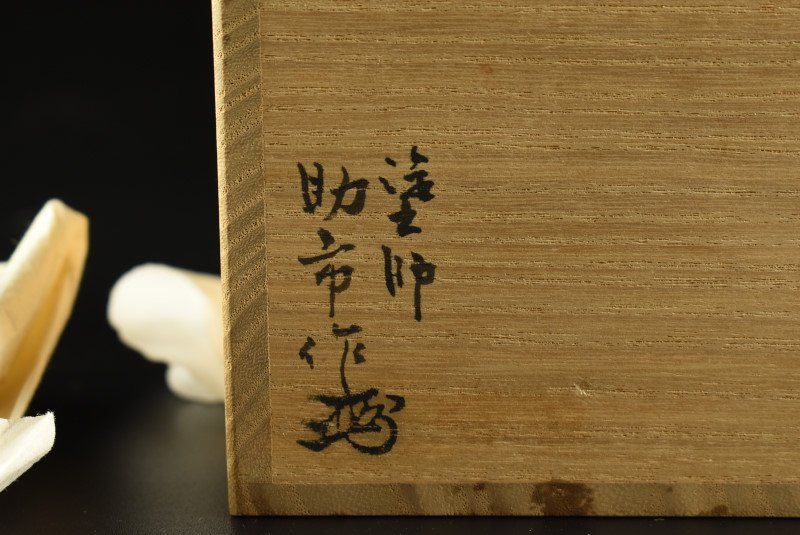 塗師
助市作